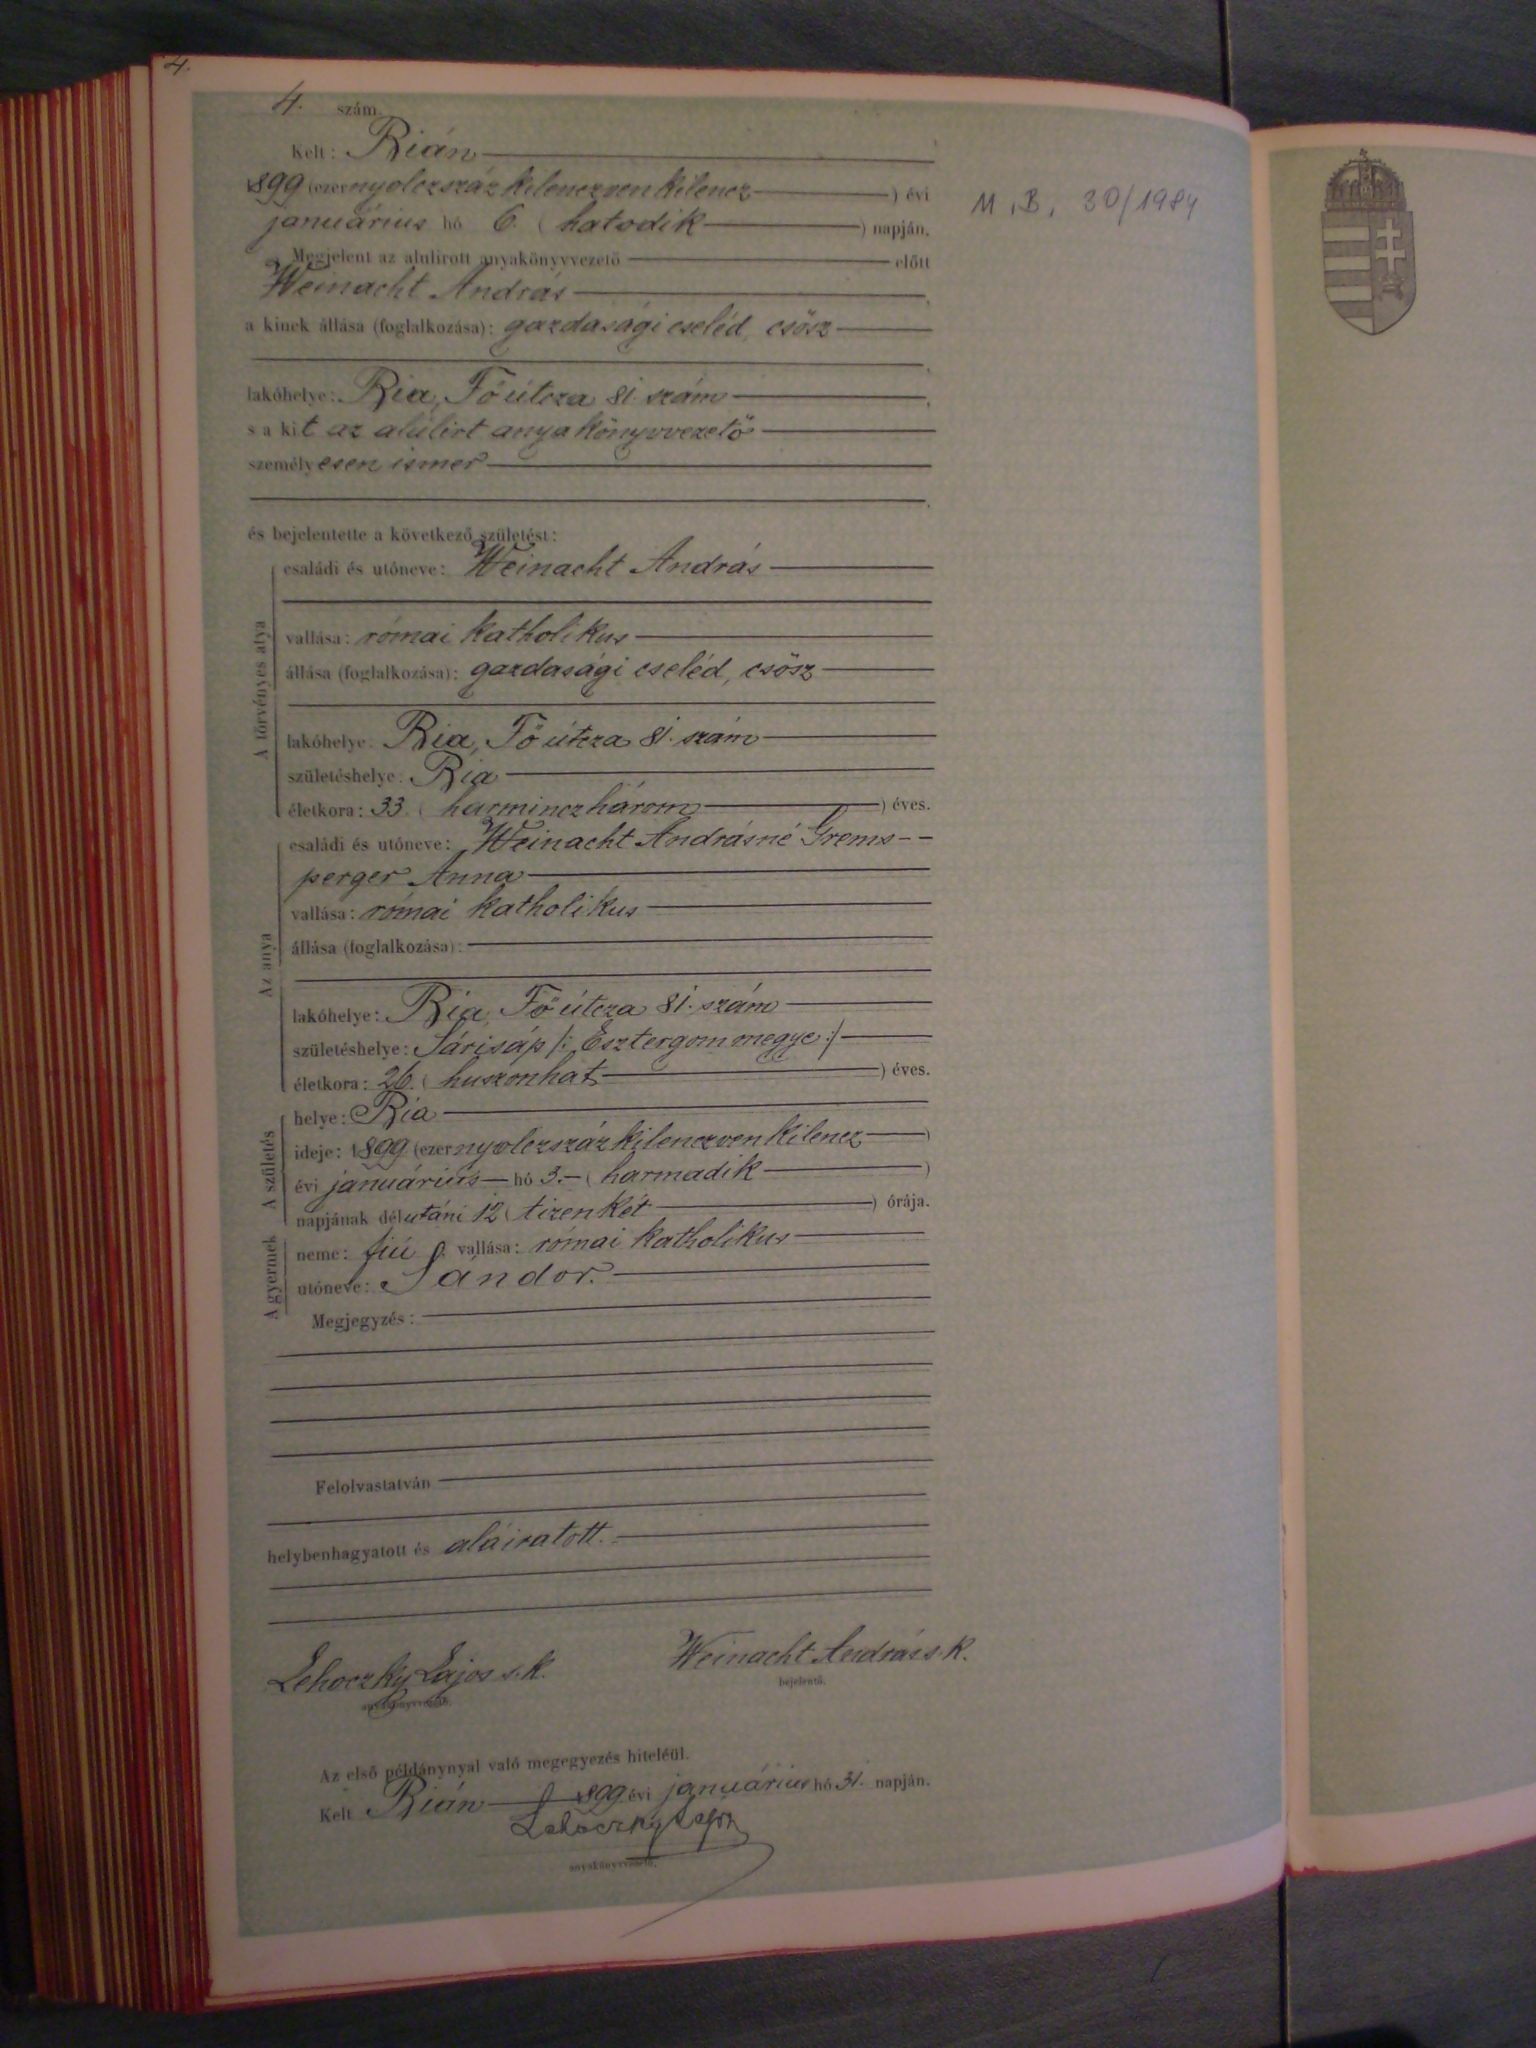 4.
4. szám.
Kelt: Bián
1899 (ezernyolczszázkilenczvenkilencz) évi
januárius hó 6. (hatodik) napján,
Megjelent az alulirott anyakönyvvezető előtt
Weinacht András,
a kinek állása (foglalkozása): gazdasági cseléd, csősz
,
lakóhelye: Bia, Fő útcza 81. szám,
s a kit az alúlirt anyakönyvvezető
személyesen ismer
,
és bejelentette a következő születést:
A törvényes atya
családi és utóneve: Weinacht András
vallása: római katholikus
állása (foglalkozása): gazdasági cseléd, csősz
lakóhelye: Bia, Fő útcza 81. szám
születéshelye: Bia
életkora: 33. (harminczhárom) éves.
Az anya
családi és utóneve: Weinacht Andrásné Grems--
perger Anna
vallása: római katholikus
állása (foglalkozása):
lakóhelye: Bia, Fő útcza 81. szám
születéshelye: Sárisáp /: Esztergom megye :/
életkora: 26. (huszonhat) éves.
A születés
helye: Bia
ideje: 1899 (ezernyolczszázkilenczvenkilencz)
évi januárius hó 3.- (harmadik)
napjának délutáni 12 (tizenkét) órája.
A gyermek
neme: fiú vallása: római katholikus
utóneve: Sándor.
Megjegyzés:
Felolvastatván
helybenhagyatott és aláiratott.
Lehoczky Lajos s.k. Weinacht András s.k.
anyakönyvvezető. bejelentő.
Az első példánynyal való megegyezés hiteléül.
Kelt Bián 1899 évi januárius hó 31. napján.
Lehoczky Lajos
anyakönyvvezető.
M.B. 30/1984